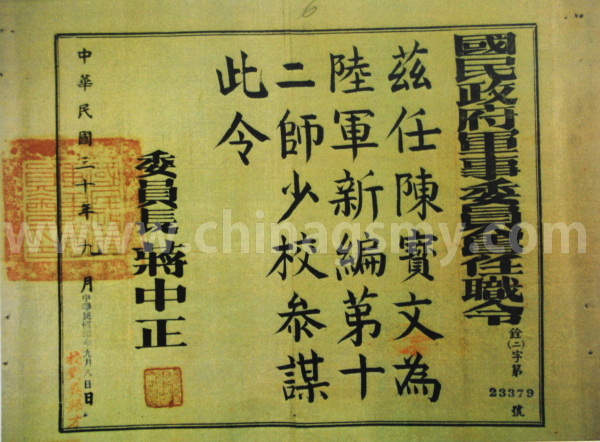 6
國民政府軍事委員會任職令
銓(二)字第
23379
號
茲任陳寶文為
陸軍新編第十
二師少校參謀
此令
委員長蔣中正
中華民國三十年九月
日
www.chinagsmy.com